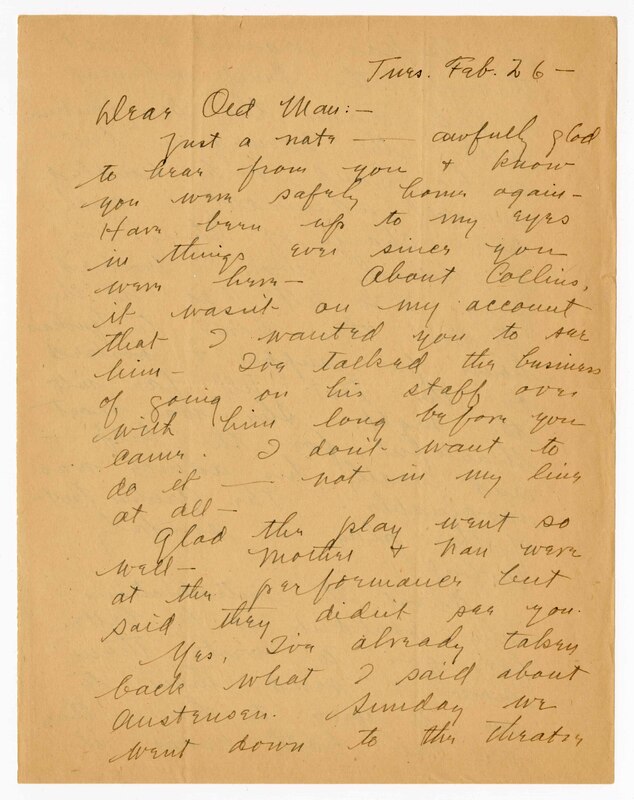 Tues. Feb. 26 —
Dear Old Man:—
Just a note — awfully glad
to hear from you & know
you were safely home again —
Have been up to my eyes
in things ever since you
were here — About Collins,
it wasn't on my account
that I wanted you to see
him — I've talked the business
of going on his staff over
with him long before you
came. I don't want to
do it — not in my line
at all —
Glad the play went so
well — Mother & Nan were
at the performance but
said they didn't see you.
Yes, I've already taken
back what I said about
Austensen. Sunday we
went down to the theatre